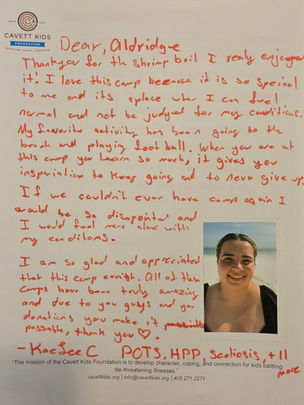 CAVETT KIDS
FOUNDATION
Dear, Aldridge
Thankyou for the shrimp boil I realy enjoyed
it! I love this camp because it is so special
to me and its aplace where I can feel
normal and not be judged for my conditions.
My favorite activity has been going to the
beach and playing foot ball. When you are at
this camp you learn so much, it gives you
insperation to keep going and to never give up.
If we couldn't ever have camp again I
would be so disapointed and
I would feel more alone with
my conditons.
I am so glad and appreciated
that this camp exist. All of the
camps have been truly amazing
and due to you guys and your
donations you make it
possable, thank you ♡.
-KaeLee C POTS, HPP, Scoliosis, + 11
more
"The mission of the Cavett Kids Foundation is to develop character, coping, and connection for kids battling
life-threatening illnesses."
cavettkids.org | info@cavettkids.org | 405.271.2271